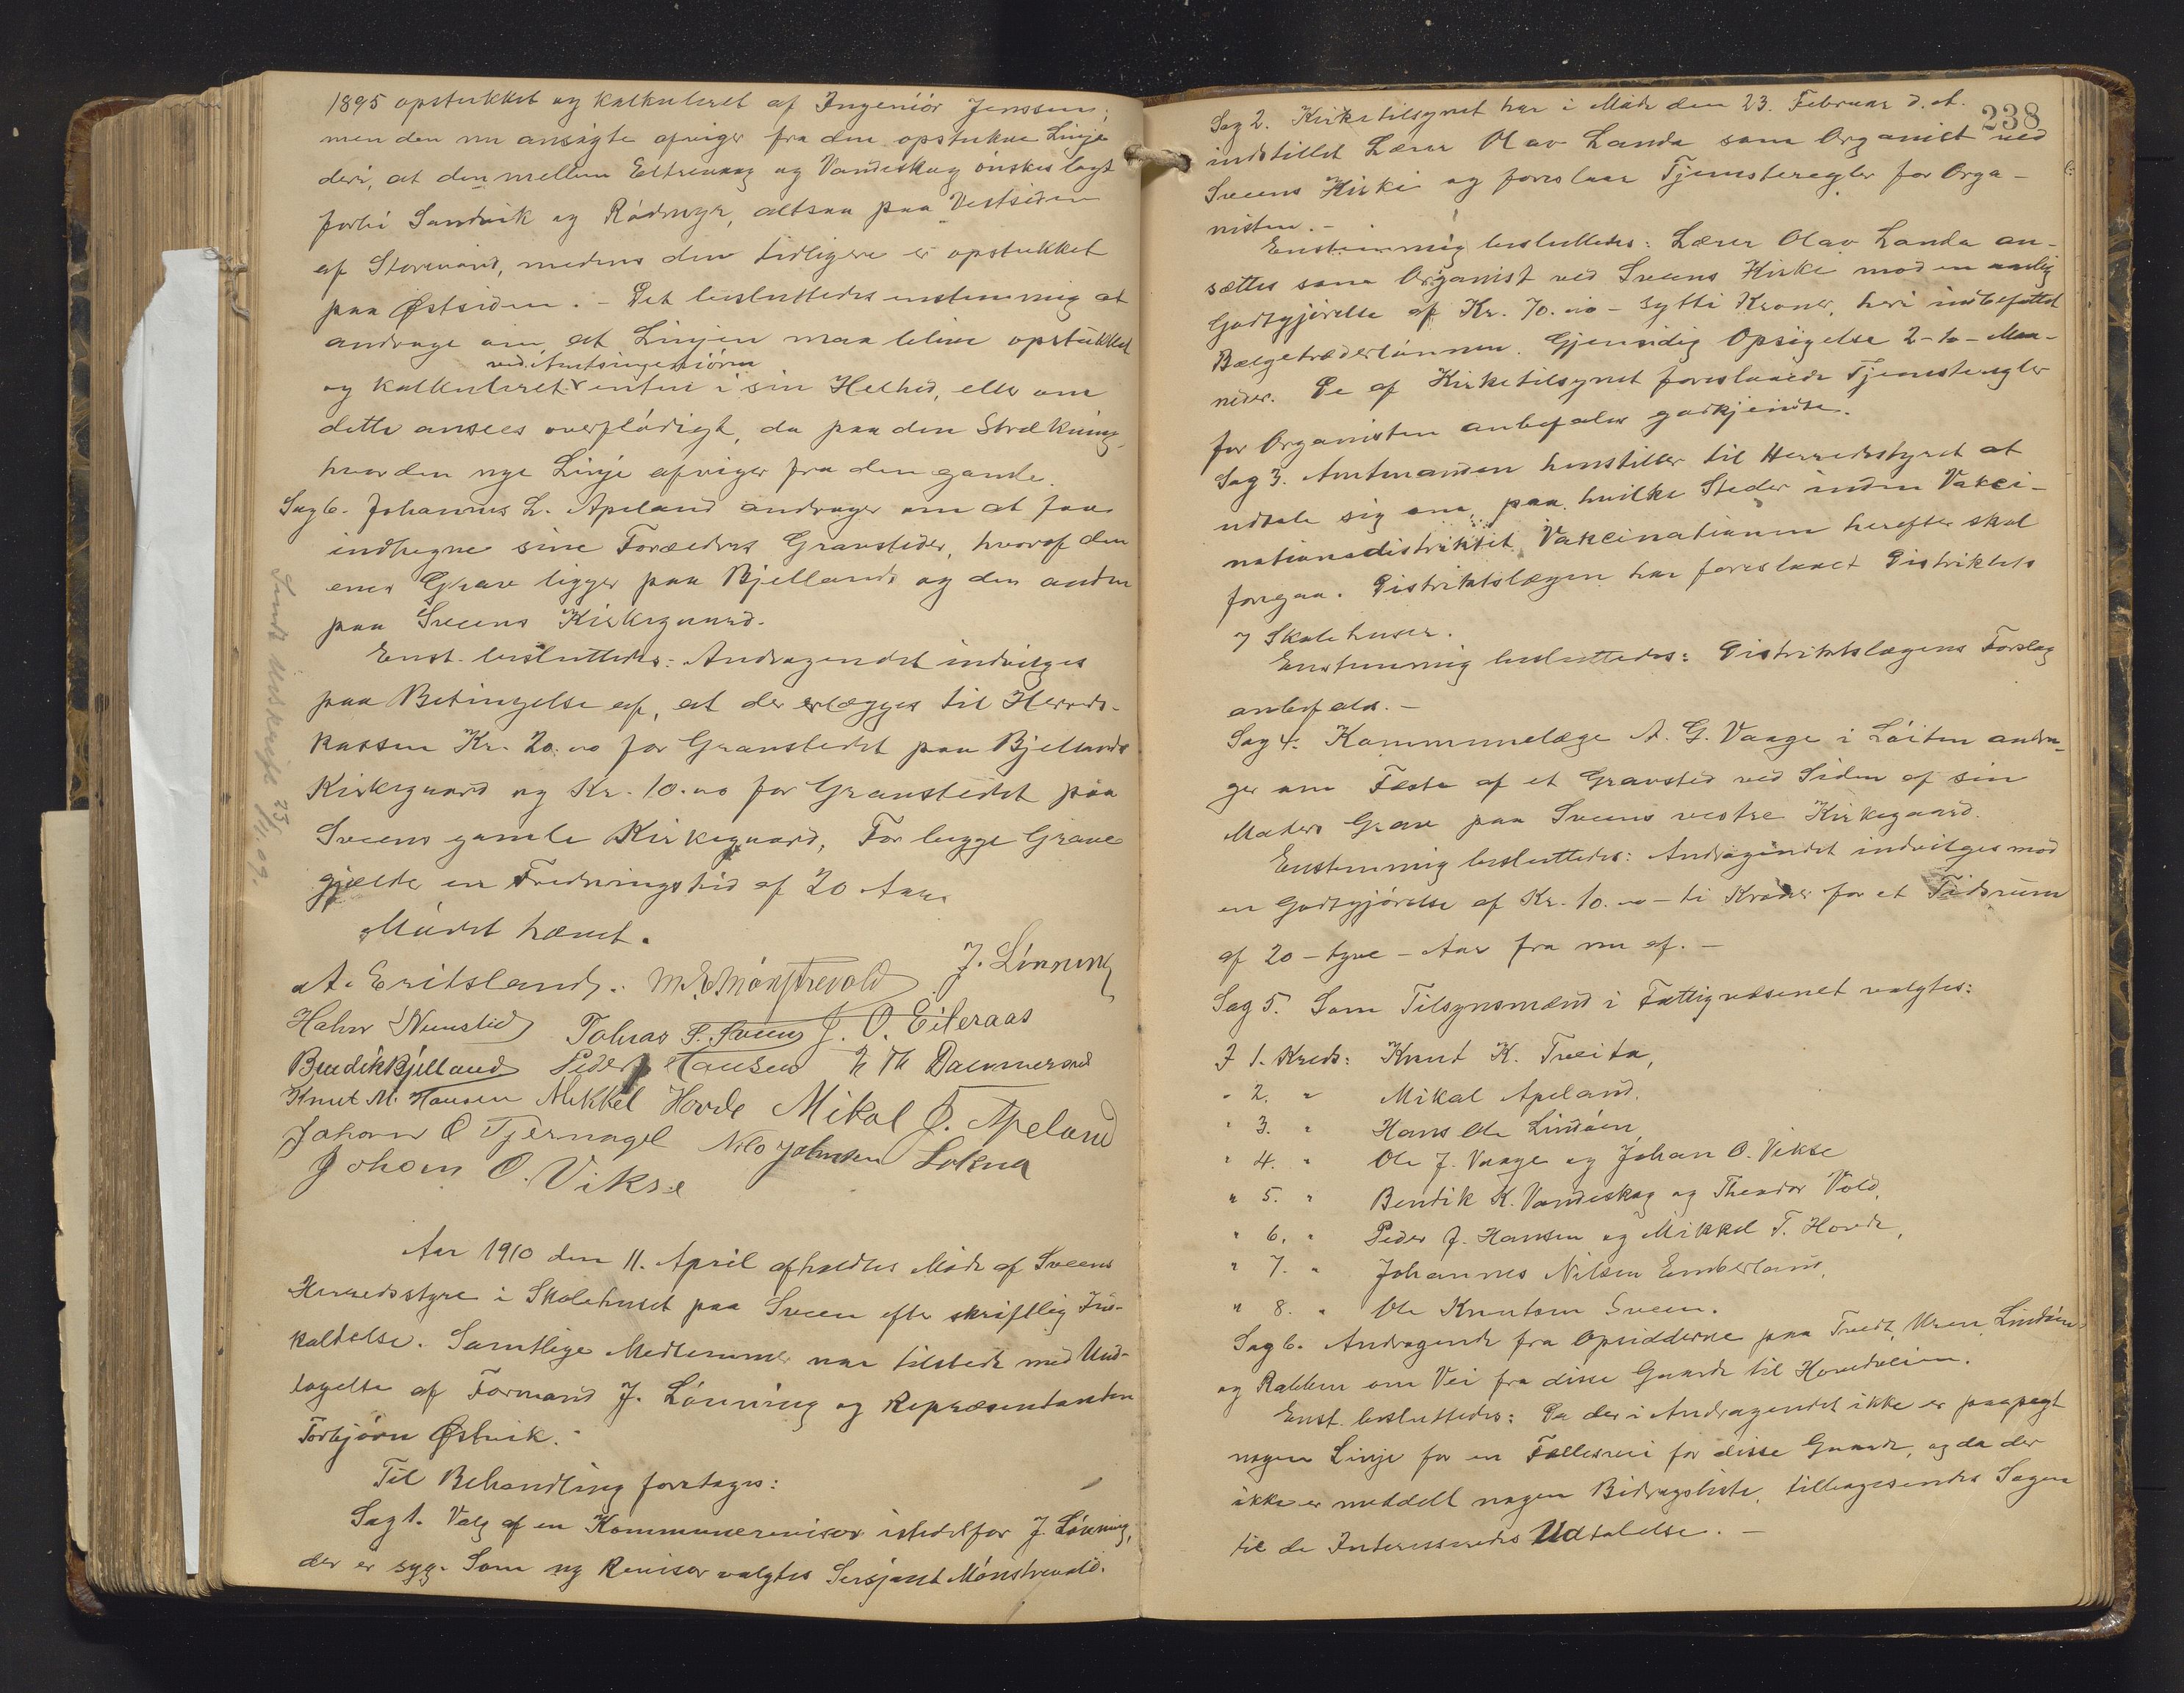 1895 opstukket og kalkuleret af Ingeniör Jenssen;
men den nu ansögte afviger fra den opstukne Linje
deri, at den mellem Eltrevaag og Vandeskog önskes lagt
forbi Sandvik og Rödmyr, altsaa paa Vestsiden
af Storevand, medens den tidligere er opstukket
paa Østsiden. - Det besluttedes enstemmig at
andrage om at Linjen maa blive opstukket
ved Amtsingeniören
og kalkuleret enten i sin Helhed, eller om
dette ansees overflödigt, da paa den Strækning,
hvor den nye Linje afviger fra den gamle.
Sag 6. Johannes L. Apeland andrager om at faa
indhegne sine Forældres Gravsteder, hvoraf den
ene Grav ligger paa Bjellands og den anden
paa Sveens Kirkegaard.
Enst. besluttedes: Andragendet indvilges
paa Betingelse af, at der erlægges til Herreds-
kassen Kr. 20.00 for Gravstedet paa Bjellands
Kirkegaard og Kr. 10.00 for Gravstedet paa
Sveens gamle Kirkegaard, For begge Grave
gjælder en Fredningstid af 20 Aar.
Mödet hævet.
Sendt Udskrift 23/11.09.
A. Eritsland. M. E. Mönstrevold J. Lönning
Halvor Nernstid Tobias P. Sveen J. O. Eileraas
Bendik Bjelland Peder J Hansen Dammersnes
Knut M. Hansen Mikkel Hovde Mikal J. Apeland
Johan O Tjernagel Nils Johnsen Lokna
Johan O. Vikse
Aar 1910 den 11. April afholdtes Möde af Sveens
Herredsstyre i Skolehuset paa Sveen efter skriftlig Ind-
kaldelse. Samtlige Medlemmer var tilstede med Und-
tagelse af Formand J. Lönning og Repræsentanten
Torbjörn Østvik.
Til Behandling foretages:
Sag 1. Valg af en Kommunerevisor istedetfor J. Lönning,
der er syg. Som ny Revisor valgtes Sersjant Mönstrevold.
238
Sag 2. Kirketilsynet har i Möde den 23. Februar d. A.
indstillet Lærer Olav Landa som Organist ved
Sveens Kirke og foreslaar Tjenesteregler for Orga-
nisten. -
Enstemmig besluttedes: Lærer Olav Landa an-
sættes som Organist ved Sveens Kirke mod en aarlig
Godtgjörelse af Kr. 70.00 - sytti Kroner, heri indbefattet
Bælgetræderlönnen. Gjensidig Opsigelse 2 - to - Maa-
neder. De af Kirketilsynet foreslaaede Tjenesteregler
for Organisten anbefales godkjendte.
Sag 3. Amtmanden henstiller til Herredsstyret at
udtale sig om, paa hvilke Steder inden Vakci-
nationsdistriktet Vakcinationen herefter skal
foregaa. Distriktslægen har foreslaaet Distriktets
7 Skolehuser.
Enstemmig besluttedes: Distriktslægens Forslag
anbefales. -
Sag 4. Kommunelæge A. G. Vaage i Löiten andra-
ger om Fæste af et Gravsted ved Siden af sin
Moders Grav paa Sveens vestre Kirkegaard.
Enstemmig besluttedes: Andragendet indvilges mod
en Godtgjörelse af Kr. 10.00 - ti Kroner for et Tidsrum
af 20 - tyve - Aar fra nu af. -
Sag 5. Som Tilsynsmænd i Fattigvæsenet valgtes:
I 1. Kreds: Knut K. Tveita,
" 2. " Mikal Apeland.
" 3. " Hans Ole Lindöen,
" 4. " Ole J. Vaage og Johan O. Vikse
" 5. " Bendik K. Vandeskog og Theodor Vold,
" 6. " Peder J. Hansen og Mikkel T. Hovde,
" 7. " Johannes Nilsen Emberland,
" 8. " Ole Knutson Sveen.
Sag 6. Andragende fra Opsidderne paa Tvedt, Uren, Lindöen
og Rabben om Vei fra disse Gaarde til Hovedveien.
Enst. besluttedes: Da der i Andragendet ikke er paapegt
nogen Linje for en Fællesvei for disse Gaarde, og da der
ikke er meddelt nogen Bidragsliste, tilbagesendes Sagen
til de Interesseredes Udtalelse. -